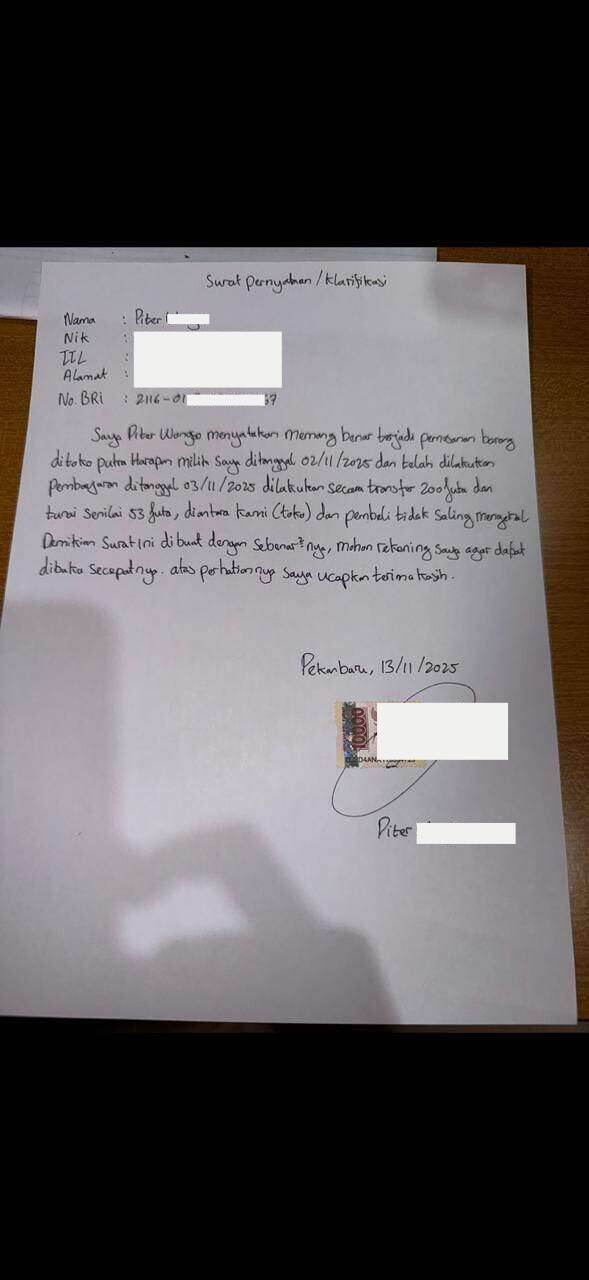 Surat Pernyataan/Klarifikasi
Nama : Piter
Nik :
TTL :
Alamat :
No. BRI : 2116-01 67
Saya Piter Wongso menyatakan memang benar terjadi pemesanan barang
ditoko putra Harapan milik Saya ditanggal 02/11/2025 dan telah dilakukan
Pembayaran ditanggal 03/11/2025 dilakukan secara transfer 200 juta dan
tunai Senilai 53 juta, diantara kami (toko) dan pembeli tidak saling mengenal
Demikian Surat ini dibuat dengan Sebenar²nya, mohon rekening saya agar dapat
dibuka secepatnya. atas perhatiannya Saya ucapkan terima kasih.
Pekanbaru, 13/11/2025
10000
Piter